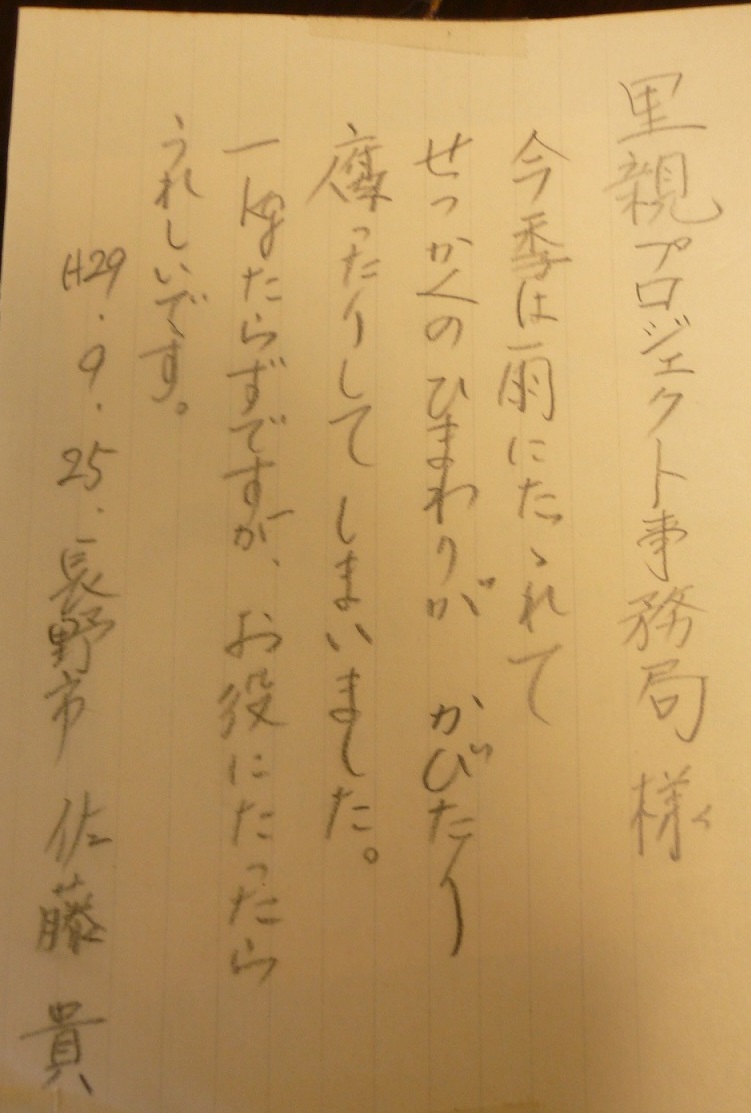 里親プロジェクト事務局 様
今季は雨にたゝれて
せっかくのひまわりが かびたり
腐ったりして しまいました。
一kgたらずですが、お役にたったら
うれしいです。
H29.9.25. 長野市 佐藤 貴